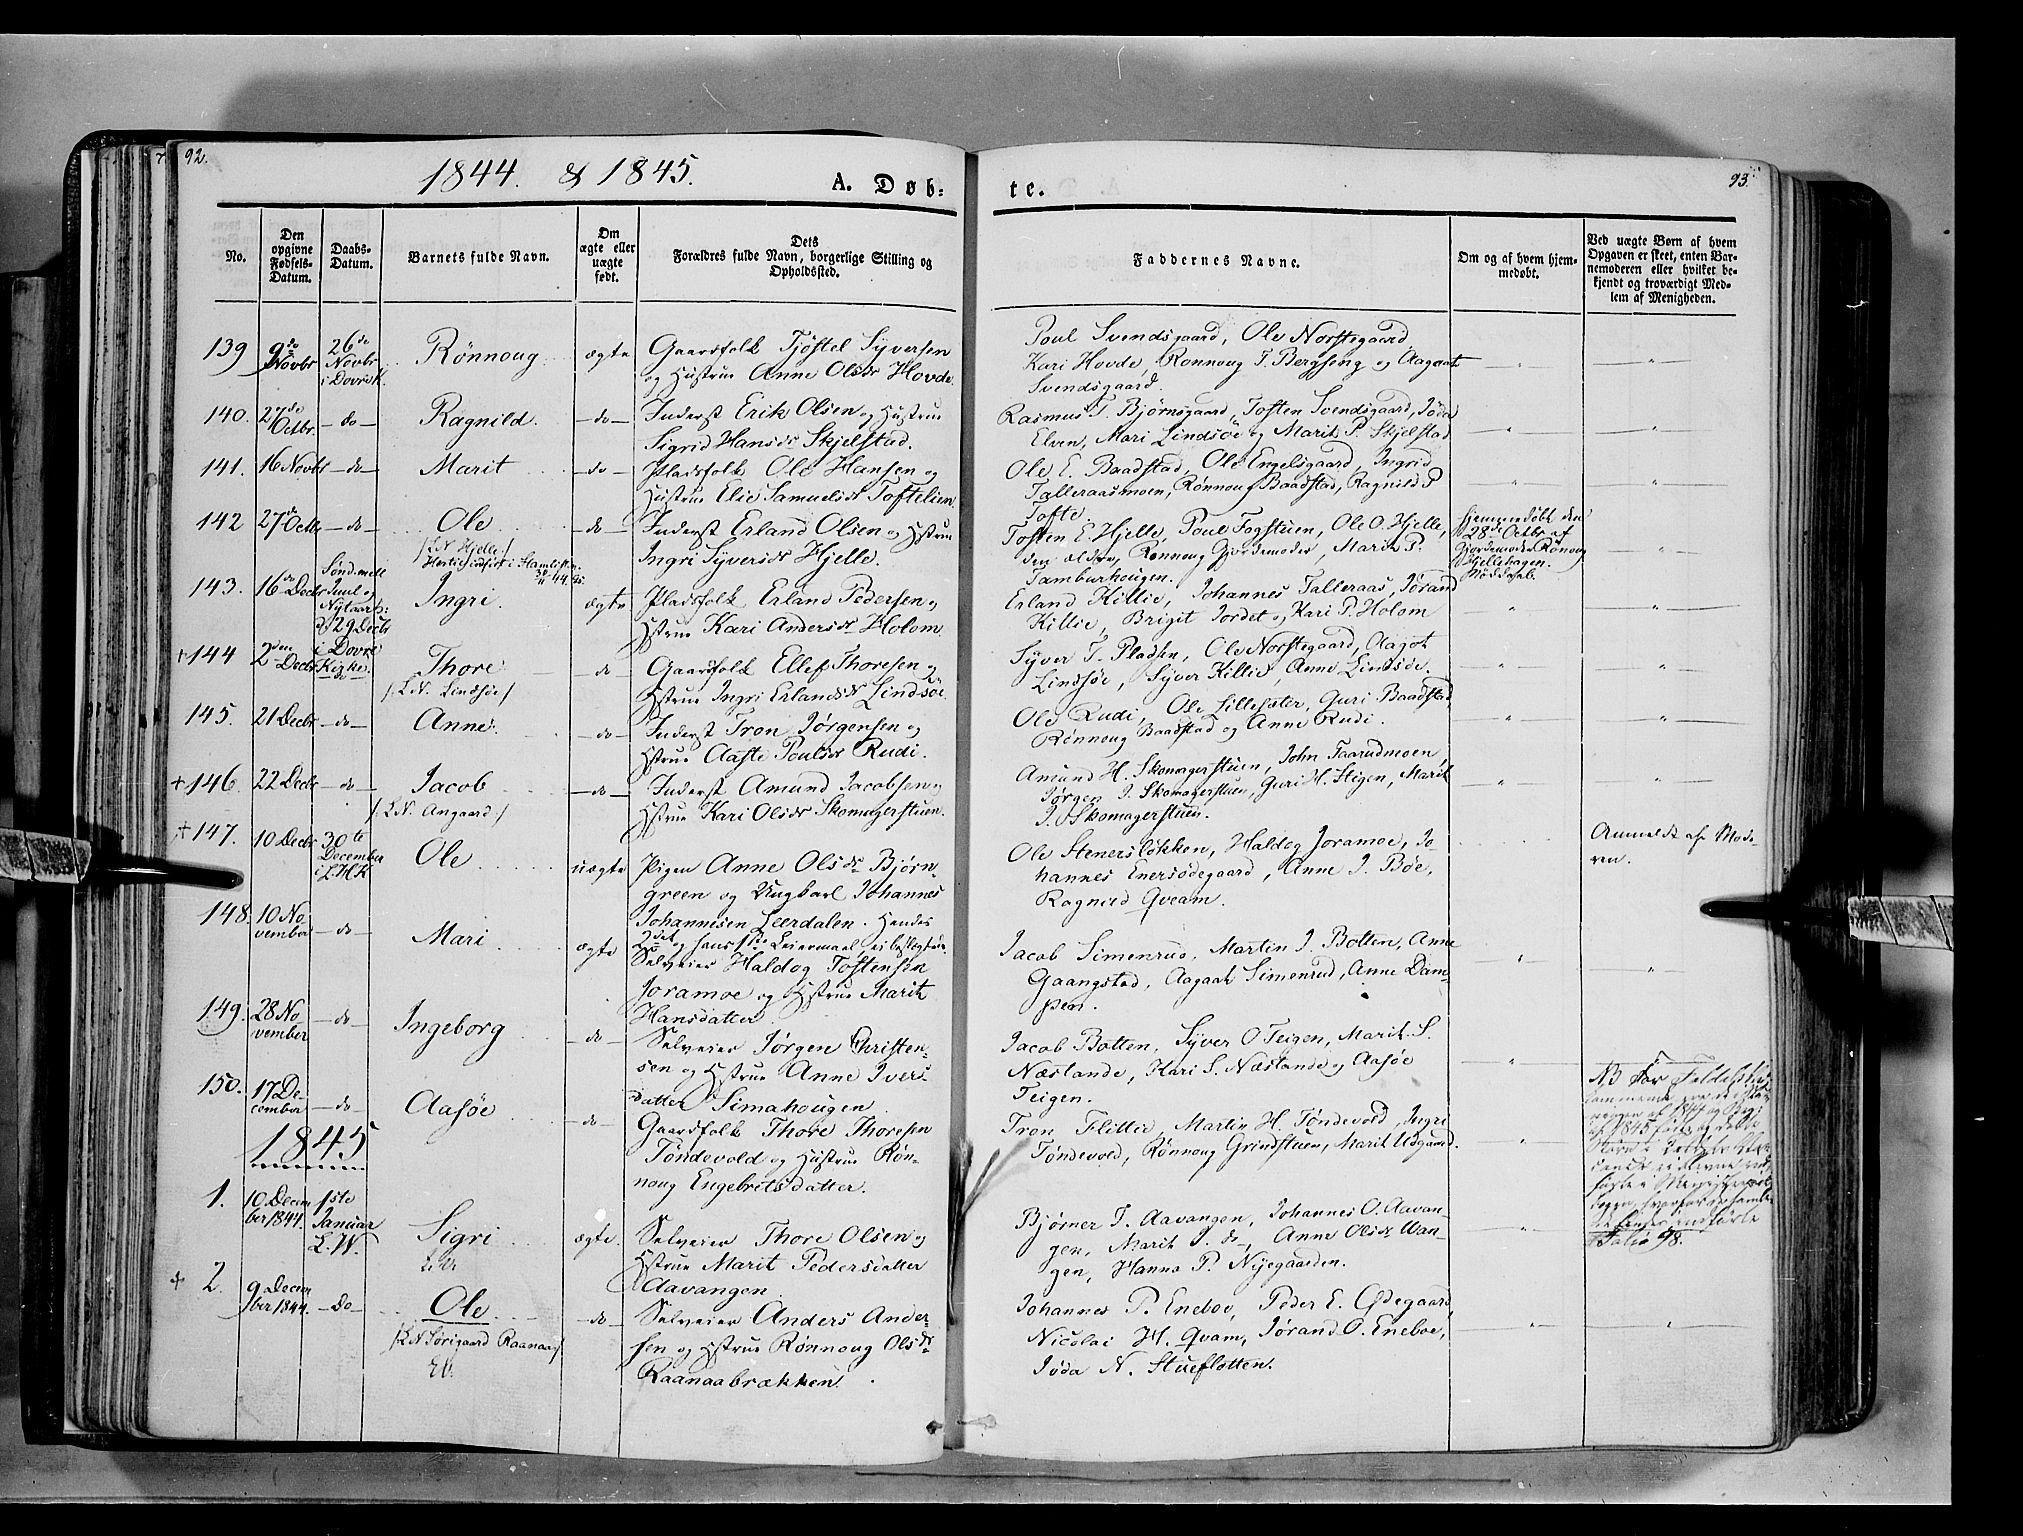 92.
1844. & 1845.
A. Døb-
te.
93.
No.
Den opgivne Fødsels-Datum.
Daabs-Datum.
Barnets fulde Navn.
Om ægte eller uægte født.
Dets Forældres fulde Navn, borgerlige Stilling og Opholdssted.
Faddernes Navne.
Om og af hvem hjem-medøbt.
Ved uægte Børn af hvem Opgaven er skeet, enten Bar-nemoderen eller hvilket be-kjendt og troværdigt Med-lem af Menigheden.
139 9de Novbr 26de Novbr i Dovre K. Rønnoug ægte Gaardfolk Tjøstel Syversen
og Hustrue Anne Olsdr Hovde.
Poul Svendsgaard, Ole Norstegaard,
Kari Hovde, Rønnoug T. Bergseng og Aagaat
Svendsgaard.
140. 27de Octbr. - do - Ragnild. - do - Inderst Erik Olsen og Hustrue
Sigrid Hansdr Skjelstad.
Rasmus T. Bjørnsgaard, Tosten Svendsgaard, Jøda
Elven, Mari Lindsøe og Marit P. Skjelstad
141. 16 Novbr - do - Marit - do - Pladsfolk Ole Hansen og
Hustrue Elie Samuelsdr Toftelien
Ole E. Baadstad, Ole Engelsgaard, Ingrid
Talleraasmoen, Rønnoug Baadstad, Ragnild P
Tofte
142 27de Octbr - do - Ole - do - Inderst Erland Olsen og Hustrue
/: L.N. Hjelle :/
Ingri Syversdr Hjelle.
Tosten E. Hjelle, Poul Fogstuen, Ole O. Hjelle,
den ældre, Rønnoug Gjordemoder, Marit P.
Tamburhougen.
Hjemmedøbt den
28de Octbr af
Gjordemoder Rønoug
Hjellehagen.
Nøddaab.
143. 16de Decbr Sønd. mell Juul og Nytaar: d 29 Decbr i Dovre Kirke. Ingri ægte Pladsfolk Erland Pedersen og
Hstrue Kari Andersdr Holom
Erland Killie, Johannes Talleraas, Jørand
Killie, Brigit Jordet og Kari P. Holom
+ 144 2den Decbr do Thore - do - Gaardfolk Ellef Thoresen og
/: L.N. Lindsøe /
Hstrue Ingri Erlandsdr Lindsøe.
Syver T. Pladsen, Ole Norstegaard, Aagot
Lindsøe, Syver Killie, Anne Lindsøe.
145. 21 Decbr - do - Anne. - do - Inderst Tron Jørgensen og
Hstrue Aaste Poulsdr Rudi.
Ole Rudi, Ole Lillesæter, Guri Baadstad
Rønnoug Baadstad og Anne Rudi.
+ 146 22 Decbr - do - Jacob - do - Inderst Amund Jacobsen og
/: L.N. Angaard :/
Hstrue Kari Olsdr Skomagerstuen.
Amund H. Skomagerstuen, John Taarudmoen,
Jørgen J. Skomagerstuen, Guri H. Stigen, Marit
J. Skomagerstuen.
+ 147. 10 Decbr 30te December i L H K Ole uægte Pigen Anne Olsdr Bjørn-
green og Ungkarl Johannes
Johannesen Leerdalen. Hendes
2det og hans 1ste Leiermaal, ei beslægtede.
Ole Stenersløkken, Haldog Joramoe, Jo
hannes Enersødegaard, Anne J. Bøe,
Ragnild Qveam.
Anmeldt af Mode-
ren.
148. 10 November - do - Mari ægte Selveier Haldog Tostensen
Joramoe og Hstrue Marit
Hansdatter
Jacob Simenrud, Martin J. Botten, Anne
Gaangstad, Aagaat Simenrud, Anne Dam-
pen.
149. 28 November - do - Ingeborg - do - Selveier Jørgen Christen-
sen og Hstrue Anne Ivers
datter Simahougen
Jacob Botten, Syver O Teigen, Marit S.
Næslande, Kari S. Næslande og Aasøe
Teigen.
150. 17 December - do - Aasøe - do - Gaardfolk Thore Thoresen
Tøndevold og Hustrue Røn-
noug Engebritsdatter.
Tron Flittie, Martin H. Tøndevold, Ingri
Tøndevold, Rønnoug Grindstuen, Marit Udgaard.
1845
1. 10 December 1844. 1ste Januar L. W. Sigri ægte. Selveier Thore Olsen og
Hstrue Marit Pedersdatter
Aavangen
Bjørner T. Aavangen, Johannes O. Aavan-
gen, Marit J. do, Anne Olsdr Wan-
gen, Hanna P. Nijegaarden.
Folio 98.
+ 2. 9 December 1844. - Do - Ole - do - Selveier Anders Ander-
/: L N Sørigaard Raanaa /
sen og Hstrue Rønnoug Olsdr
Raanaabrækken.
Johannes P. Eneboe, Peder E. Ødegaard,
Nicolai H. Qvam, Jørand O. Eneboe,
Jøda N. Stuefløtten.